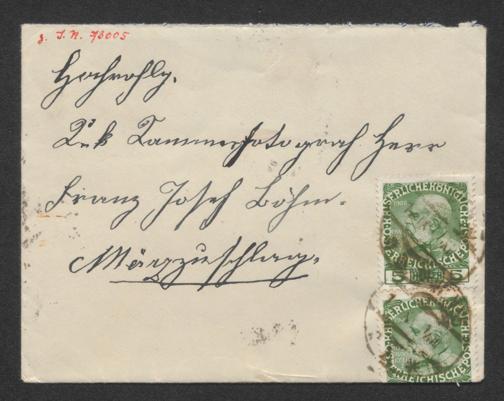 z. J.N. 73005
Hochwohlg.
K. u. k. Kammerfotograf Herr
Franz Josef Böhm.
Mürzzuschlag.
KAISERLICHE KÖNIGLICHE
ÖSTERREICHISCHE POST
5 5
KAISERLICHE KÖNIGLICHE
ÖSTERREICHISCHE POST